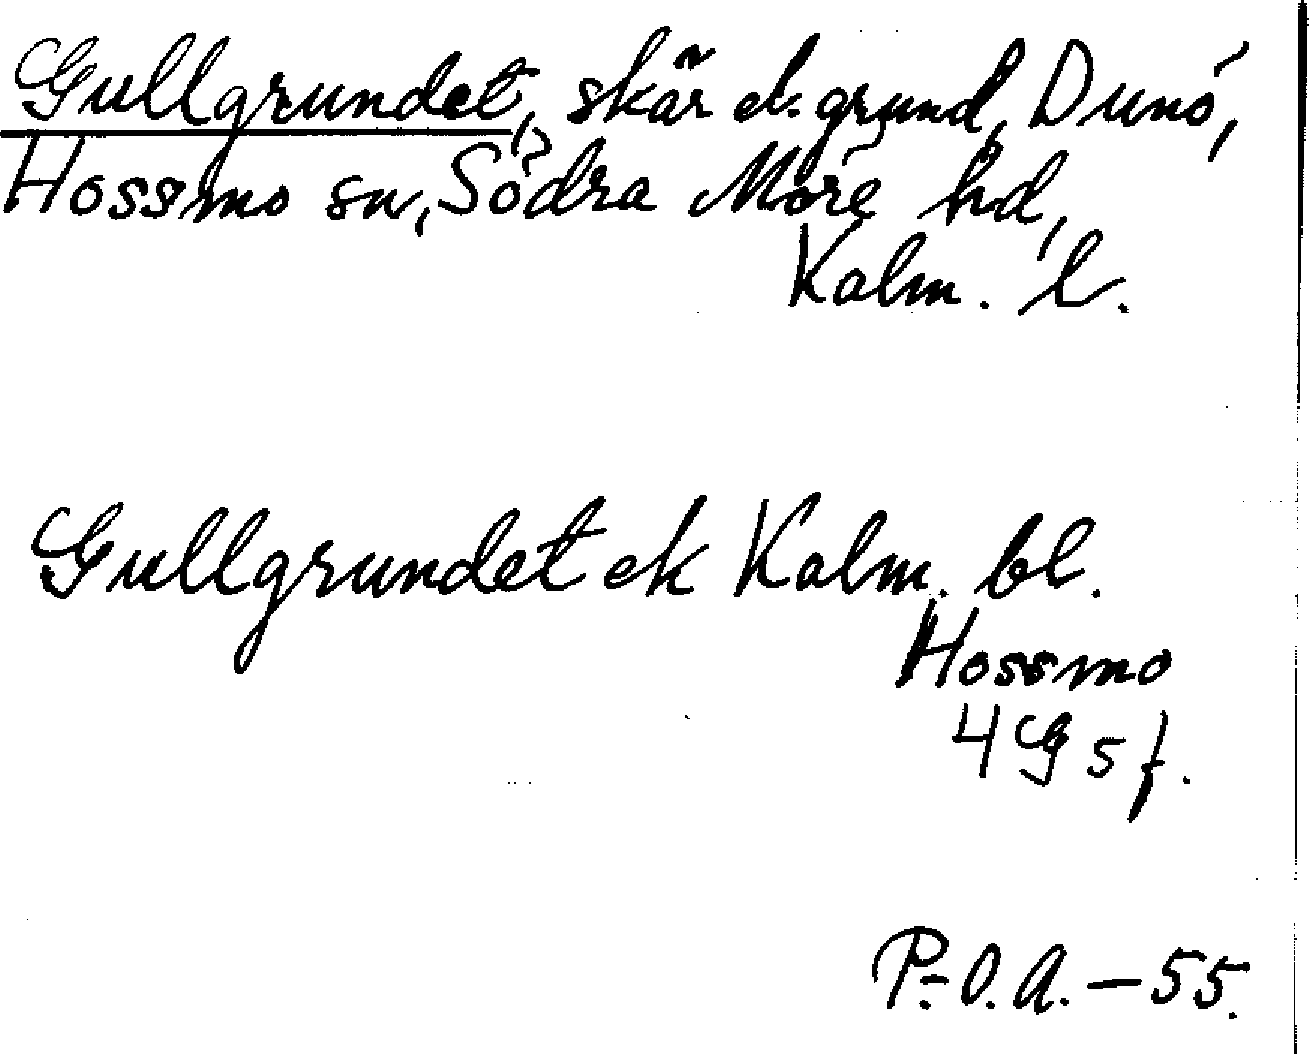 Gullgrundet, skär el. grund, Dunö,
Hossmo sn, Södra Möre hd,
Kalm. l.
Gullgrundet ek Kalm. bl.
Hossmo
4 G 5 f.
P.-O. A. – 55.